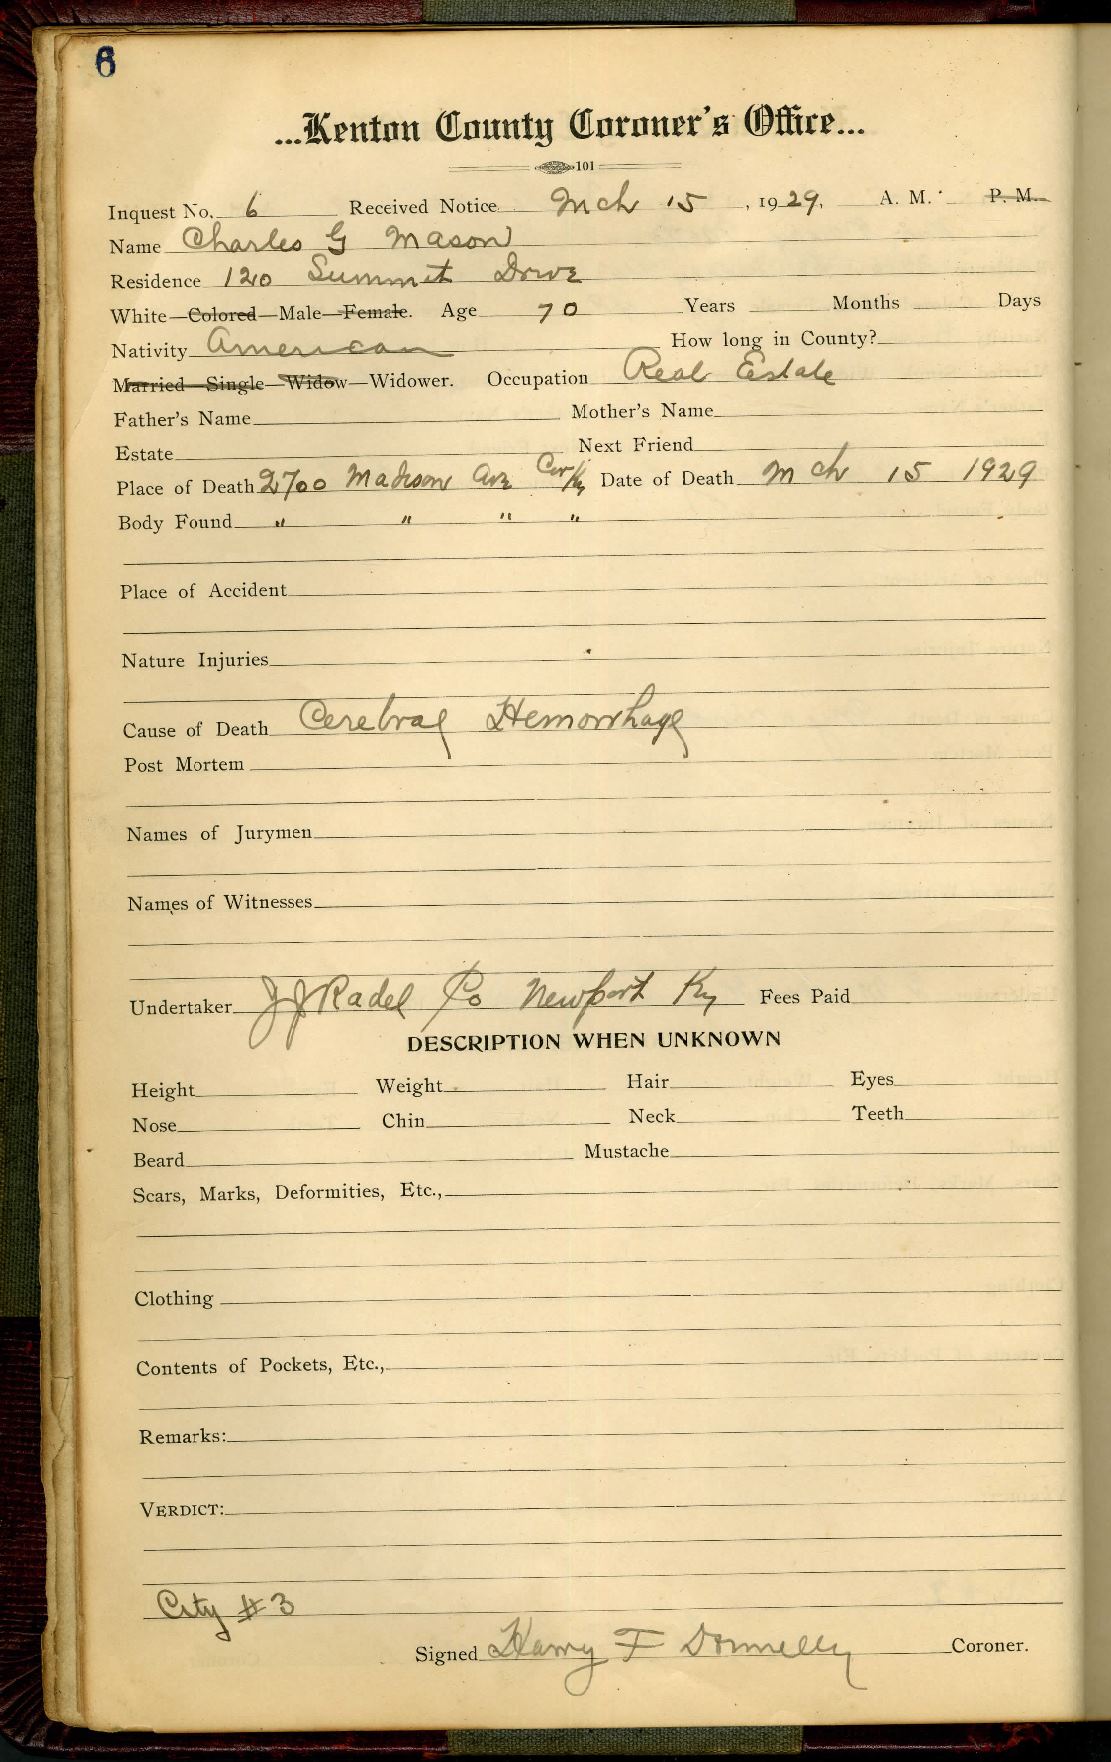 6
...Kenton County Coroner's Office...
101
Inquest No. 6 Received Notice Mch 15, 1929, A. M. P. M.
Name Charles G Mason
Residence 120 Summit Drive
White—Colored—Male—Female. Age 70 Years Months Days
Nativity American How long in County?
Married—Single—Widow—Widower. Occupation Real Estate
Father's Name Mother's Name
Estate Next Friend
Place of Death 2700 Madison Ave Cov Ky Date of Death Mch 15 1929
Body Found " " " "
Place of Accident
Nature Injuries
Cause of Death Cerebral Hemorrhage
Post Mortem
Names of Jurymen
Names of Witnesses
Undertaker JJ Radel Co Newport Ky Fees Paid
DESCRIPTION WHEN UNKNOWN
Height Weight Hair Eyes
Nose Chin Neck Teeth
Beard Mustache
Scars, Marks, Deformities, Etc.,
Clothing
Contents of Pockets, Etc.,
Remarks:
VERDICT:
City #3
Signed Harry F Donnelly Coroner.